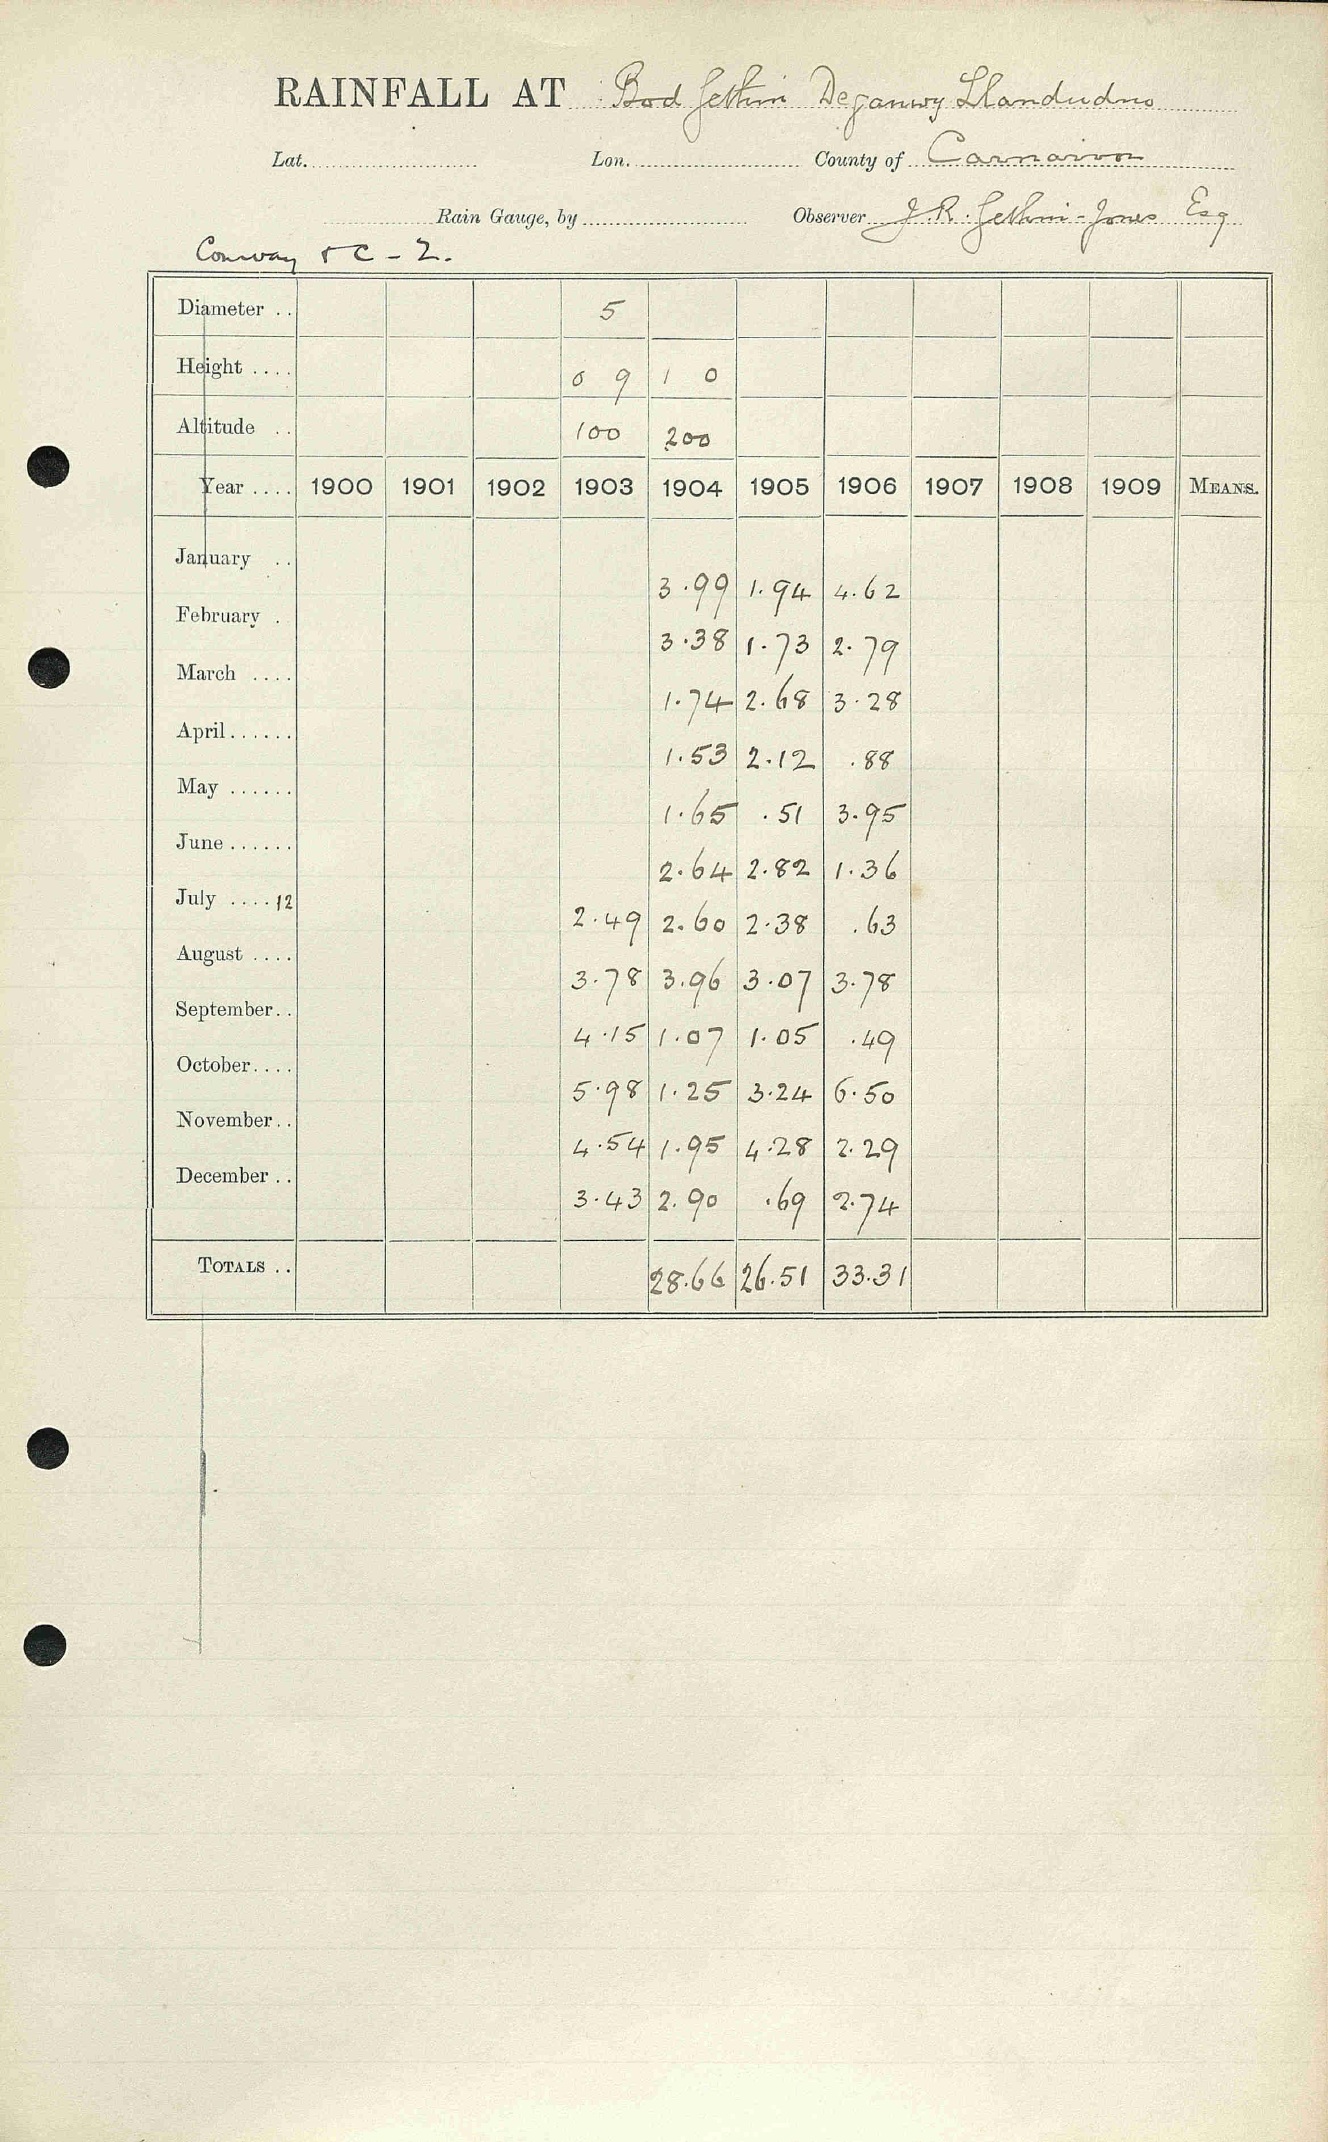 RAINFALL AT Bod Gethin Deganwy Llandudno
Lat. Lon. County of Carnarvon
Rain Gauge, by Observer J. R. Gethin-Jones Esq
Conway & C - 2.
Diameter .. 5
Height .... 0 9 1 0
Altitude .. 100 200
Year .... 1900 1901 1902 1903 1904 1905 1906 1907 1908 1909 MEANS.
January .. 3.99 1.94 4.62
February . 3.38 1.73 2.79
March .... 1.74 2.68 3.28
April...... 1.53 2.12 .88
May ...... 1.65 .51 3.95
June ...... 2.64 2.82 1.36
July .... 12 2.49 2.60 2.38 .63
August .... 3.78 3.96 3.07 3.78
September.. 4.15 1.07 1.05 .49
October.... 5.98 1.25 3.24 6.50
November.. 4.54 1.95 4.28 2.29
December .. 3.43 2.90 .69 2.74
TOTALS .. 28.66 26.51 33.31